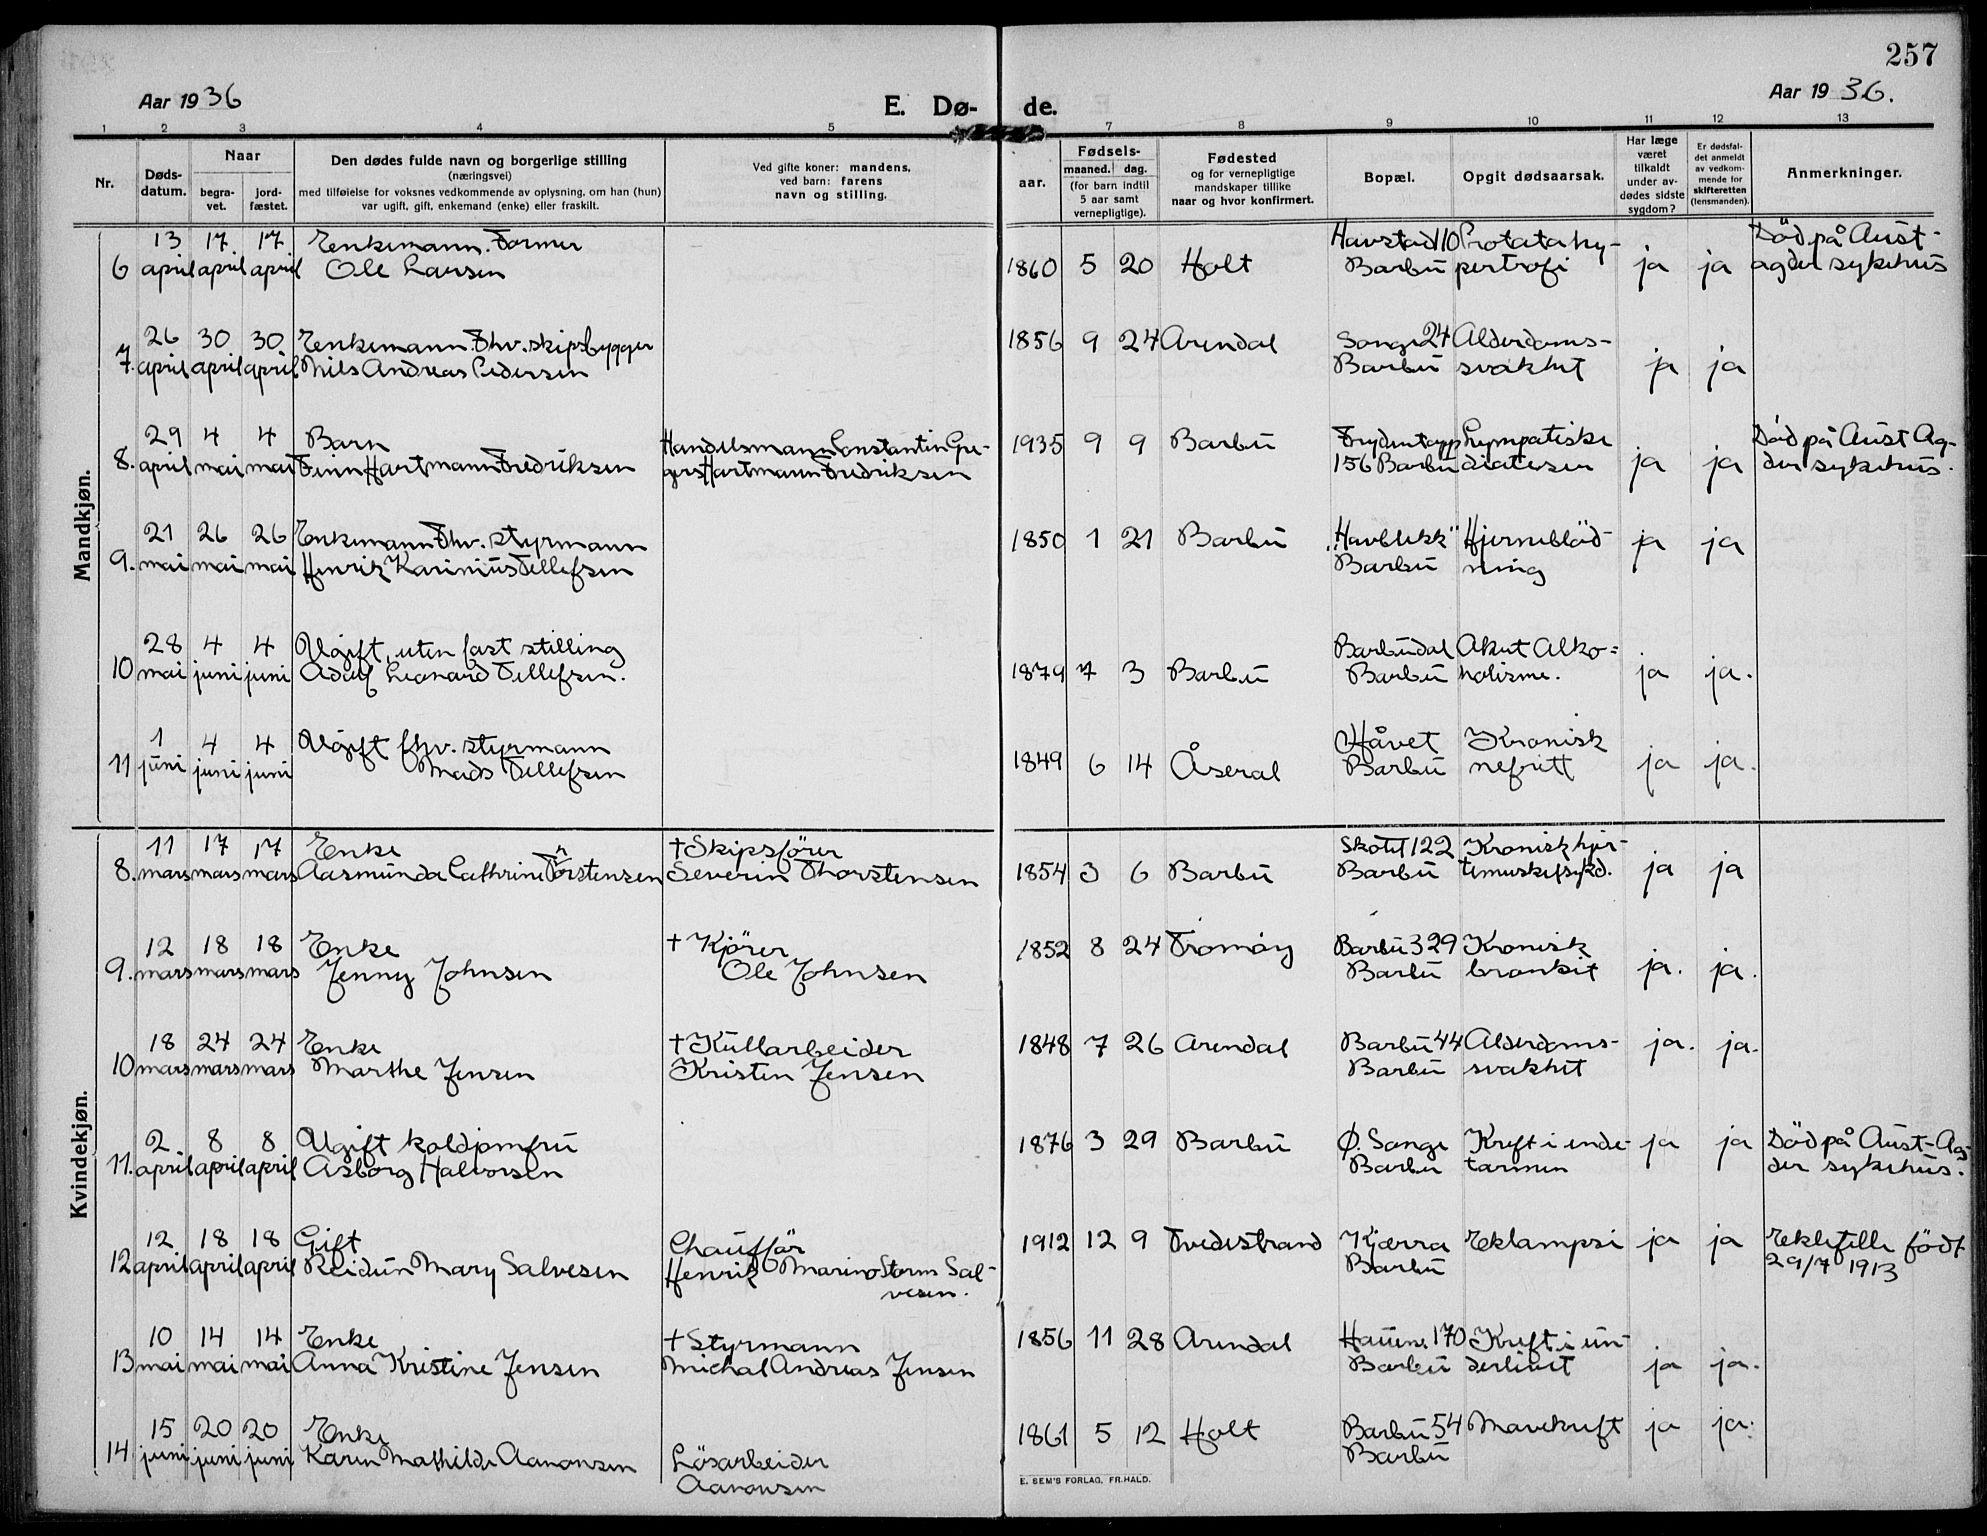 257
Aar 1936
E. Dø-
de.
Aar 1936.
1 2 3 4 5 7 8 9 10 11 12 13
Nr.
Døds-
datum.
Naar
begra-
vet.
jord-
fæstet.
Den dødes fulde navn og borgerlige stilling
(næringsvei)
med tilføielse for voksnes vedkommende av oplysning, om han (hun)
var ugift, gift, enkemand (enke) eller fraskilt.
Ved gifte koner: mandens,
ved barn: farens
navn og stilling.
aar.
Fødsels-
maaned. dag.
(for barn indtil
5 aar samt
vernepligtige).
Fødested
og for vernepligtige
mandskaper tillike
naar og hvor konfirmert.
Bopæl.
Opgit dødsaarsak.
Har læge
været
tilkaldt
under av-
dødes sidste
sygdom?
Er dødsfal-
det anmeldt
av vedkom-
mende for
skifteretten
(lensmanden).
Anmerkninger.
Mandkjøn.
13 17 17 Enkemann. Former Havstad 110 Protatahy- Död på Aust-
6 april april april Ole Larsen 1860 5 20 Holt Barbu pertrofi ja ja agder sykehus
26 30 30 Enkemann. Fhv. skipsbygger 1856 9 24 Arendal Songe 24 Alderdoms-
7. april april april Nils Andreas Pedersen Barbu svakhet ja ja
29 4 4 Barn Handelsmann Constantin Gre- 1935 9 9 Barbu Frydentopp Lympatiske Död på Aust Ag-
8. april mai mai Finn Hartmann Fredriksen gers Hartmann Fredriksen 156 Barbu diatesen ja ja der sykehus.
21 26 26 Enkemann Fhv. styrmann 1850 1 21 Barbu "Havblikk" Hjerneblöd- ja ja
9. mai mai mai Henrik Karinius Tellefsen Barbu ning
28 4 4 Ugift, uten fast stilling Barbudal Akut Alko-
10 mai juni juni Adolf Leonard Tellefsen. 1879 7 3 Barbu Barbu holisme. ja ja.
1 4 4 Ugift fhv. styrmann Håvet Kronisk
11 juni juni juni Mads Tellefsen 1849 6 14 Åseral Barbu nefritt ja ja.
Kvindekjøn.
11 17 17 Enke † Skipsförer Skotet 122 Kronisk hjer-
8. mars mars mars Aasmunda Cathrine Thorstensen Severin Thorstensen 1854 3 6 Barbu Barbu temuskelsykd. ja ja
12 18 18 Enke † Kjörer 1852 8 24 Tromöy Barbu 329 Kronisk
9. mars mars mars Jenny Johnsen Ole Johnsen Barbu bronkit ja. ja.
18 24 24 Enke † Kullarbeider 1848 7 26 Arendal Barbu 44 Alderdoms- ja. ja.
10 mars mars mars Marthe Jensen Kristen Jensen Barbu svakhet
2 8 8 Ugift koldjomfru 1876 3 29 Barbu Ø. Songe Kreft i ende- ja ja Död på Aust-Ag-
11. april april april Asborg Halvorsen Barbu tarmen der sykehus.
12 18 18 Gift Chaufför 1912 12 9 Tvedestrand Kjærra Eklampsi ja ja Ektefelle født
12 april april april Reidun Mary Salvesen Henrik Marino Storm Sal- Barbu 29/7 1913
vesen.
10 14 14 Enke † Styrmann 1856 11 28 Arendal Hauene 170 Kreft i un-
13 mai mai mai Anna Kristine Jensen Michal Andreas Jensen Barbu derlivet ja ja.
15 20 20 Enke 1861 5 12 Holt Barbu 54 Mavekreft ja ja.
14. juni juni juni Karen Mathilde Aanonsen Lösarbeider Barbu
Aanonsen
E. SEM'S FORLAG, FR.HALD.